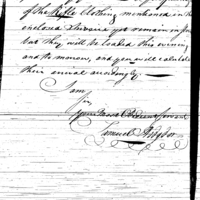 of the Hetts Clothing mentioned in the
enclosed Invoice yet remain in
but they will be loaded this evening
and tomorrow, and you will calculate
their arrival accordingly.
I am
Sir
Your Most Obedient Servant
Samuel Hodgdon